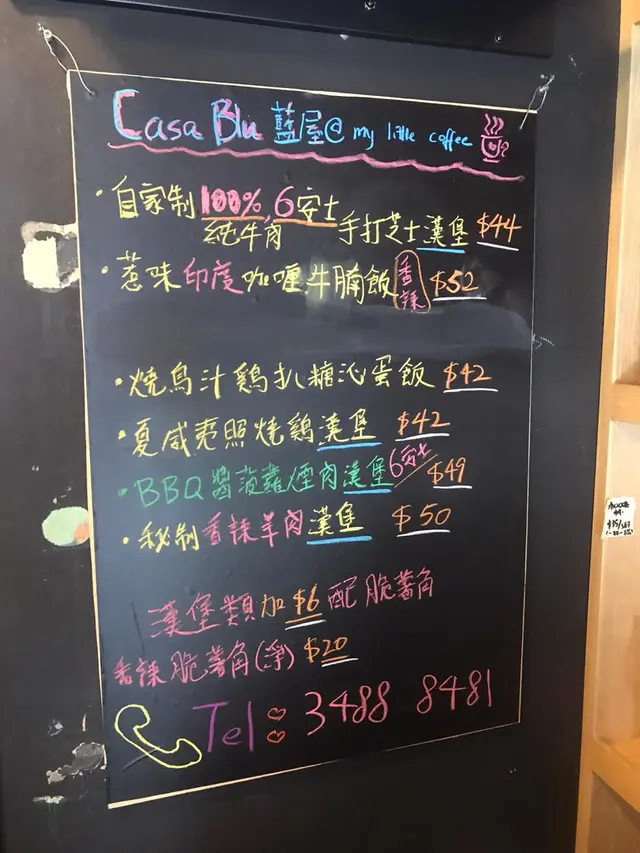 Casa Blu 藍屋@ my little coffee
・自家制100%, 6安士
純牛肉 手打芝士漢堡 $44
・惹味印度咖喱牛腩飯 香辣 $52
・燒鳥汁鷄扒糖沁蛋飯 $42
・夏威夷照燒鷄漢堡 $42
・BBQ醬菠蘿煙肉漢堡 6安士 $49
・秘制香辣羊肉漢堡 $50
漢堡類加$6配脆薯角
香辣脆薯角(淨) $20
Tel: 3488 8481